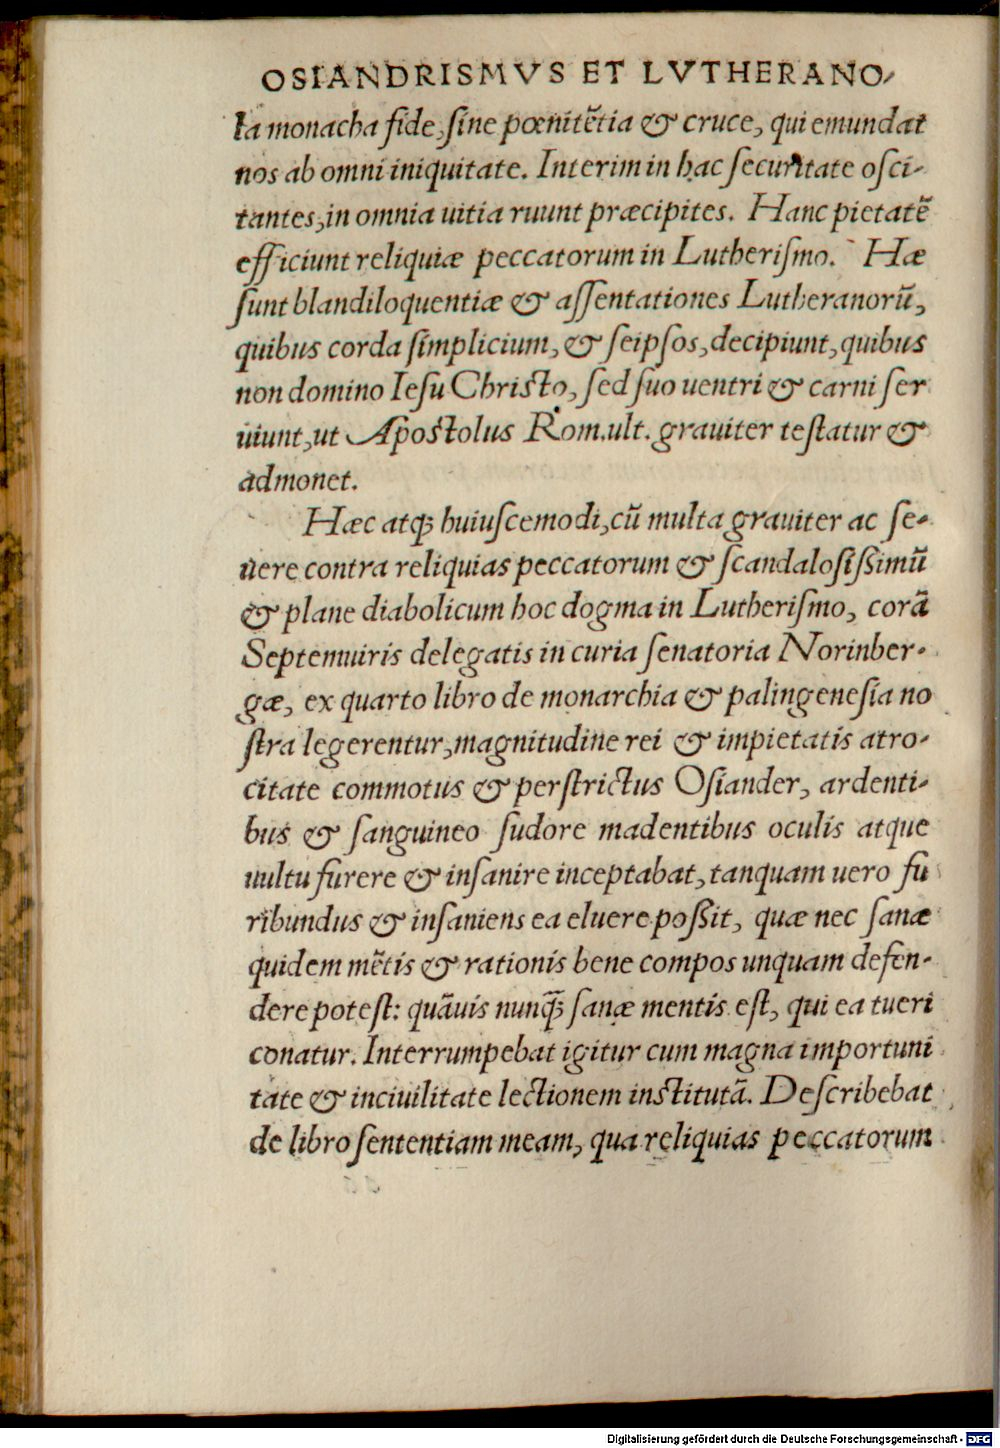 OSIANDRISMVS ET LVTHERANO-
la monacha fide, sine pœnitẽtia & cruce, qui emundat
nos ab omni iniquitate. Interim in hac securitate osci-
tantes, in omnia uitia ruunt præcipites. Hanc pietatẽ
efficiunt reliquiæ peccatorum in Lutherismo. Hæ
sunt blandiloquentiæ & assentationes Lutheranorũ,
quibus corda simplicium, & seipsos, decipiunt, quibus
non domino Iesu Christo, sed suo uentri & carni ser
uiunt, ut Apostolus Rom. ult. grauiter testatur &
admonet.
Hæc atq; huiuscemodi, cũ multa grauiter ac se-
uere contra reliquias peccatorum & scandalosißimũ
& plane diabolicum hoc dogma in Lutherismo, corã
Septemuiris delegatis in curia senatoria Norinber-
gæ, ex quarto libro de monarchia & palingenesia no
stra legerentur, magnitudine rei & impietatis atro-
citate commotus & perstrictus Osiander, ardenti-
bus & sanguineo sudore madentibus oculis atque
uultu furere & insanire inceptabat, tanquam uero fu
ribundus & insaniens ea eluere poßit, quæ nec sanæ
quidem mẽtis & rationis bene compos unquam defen-
dere potest: quãuis nunq̃; sanæ mentis est, qui ea tueri
conatur. Interrumpebat igitur cum magna importuni
tate & inciuilitate lectionem institutã. Describebat
de libro sententiam meam, qua reliquias peccatorum
Digitalisierung gefördert durch die Deutsche Forschungsgemeinschaft - DFG